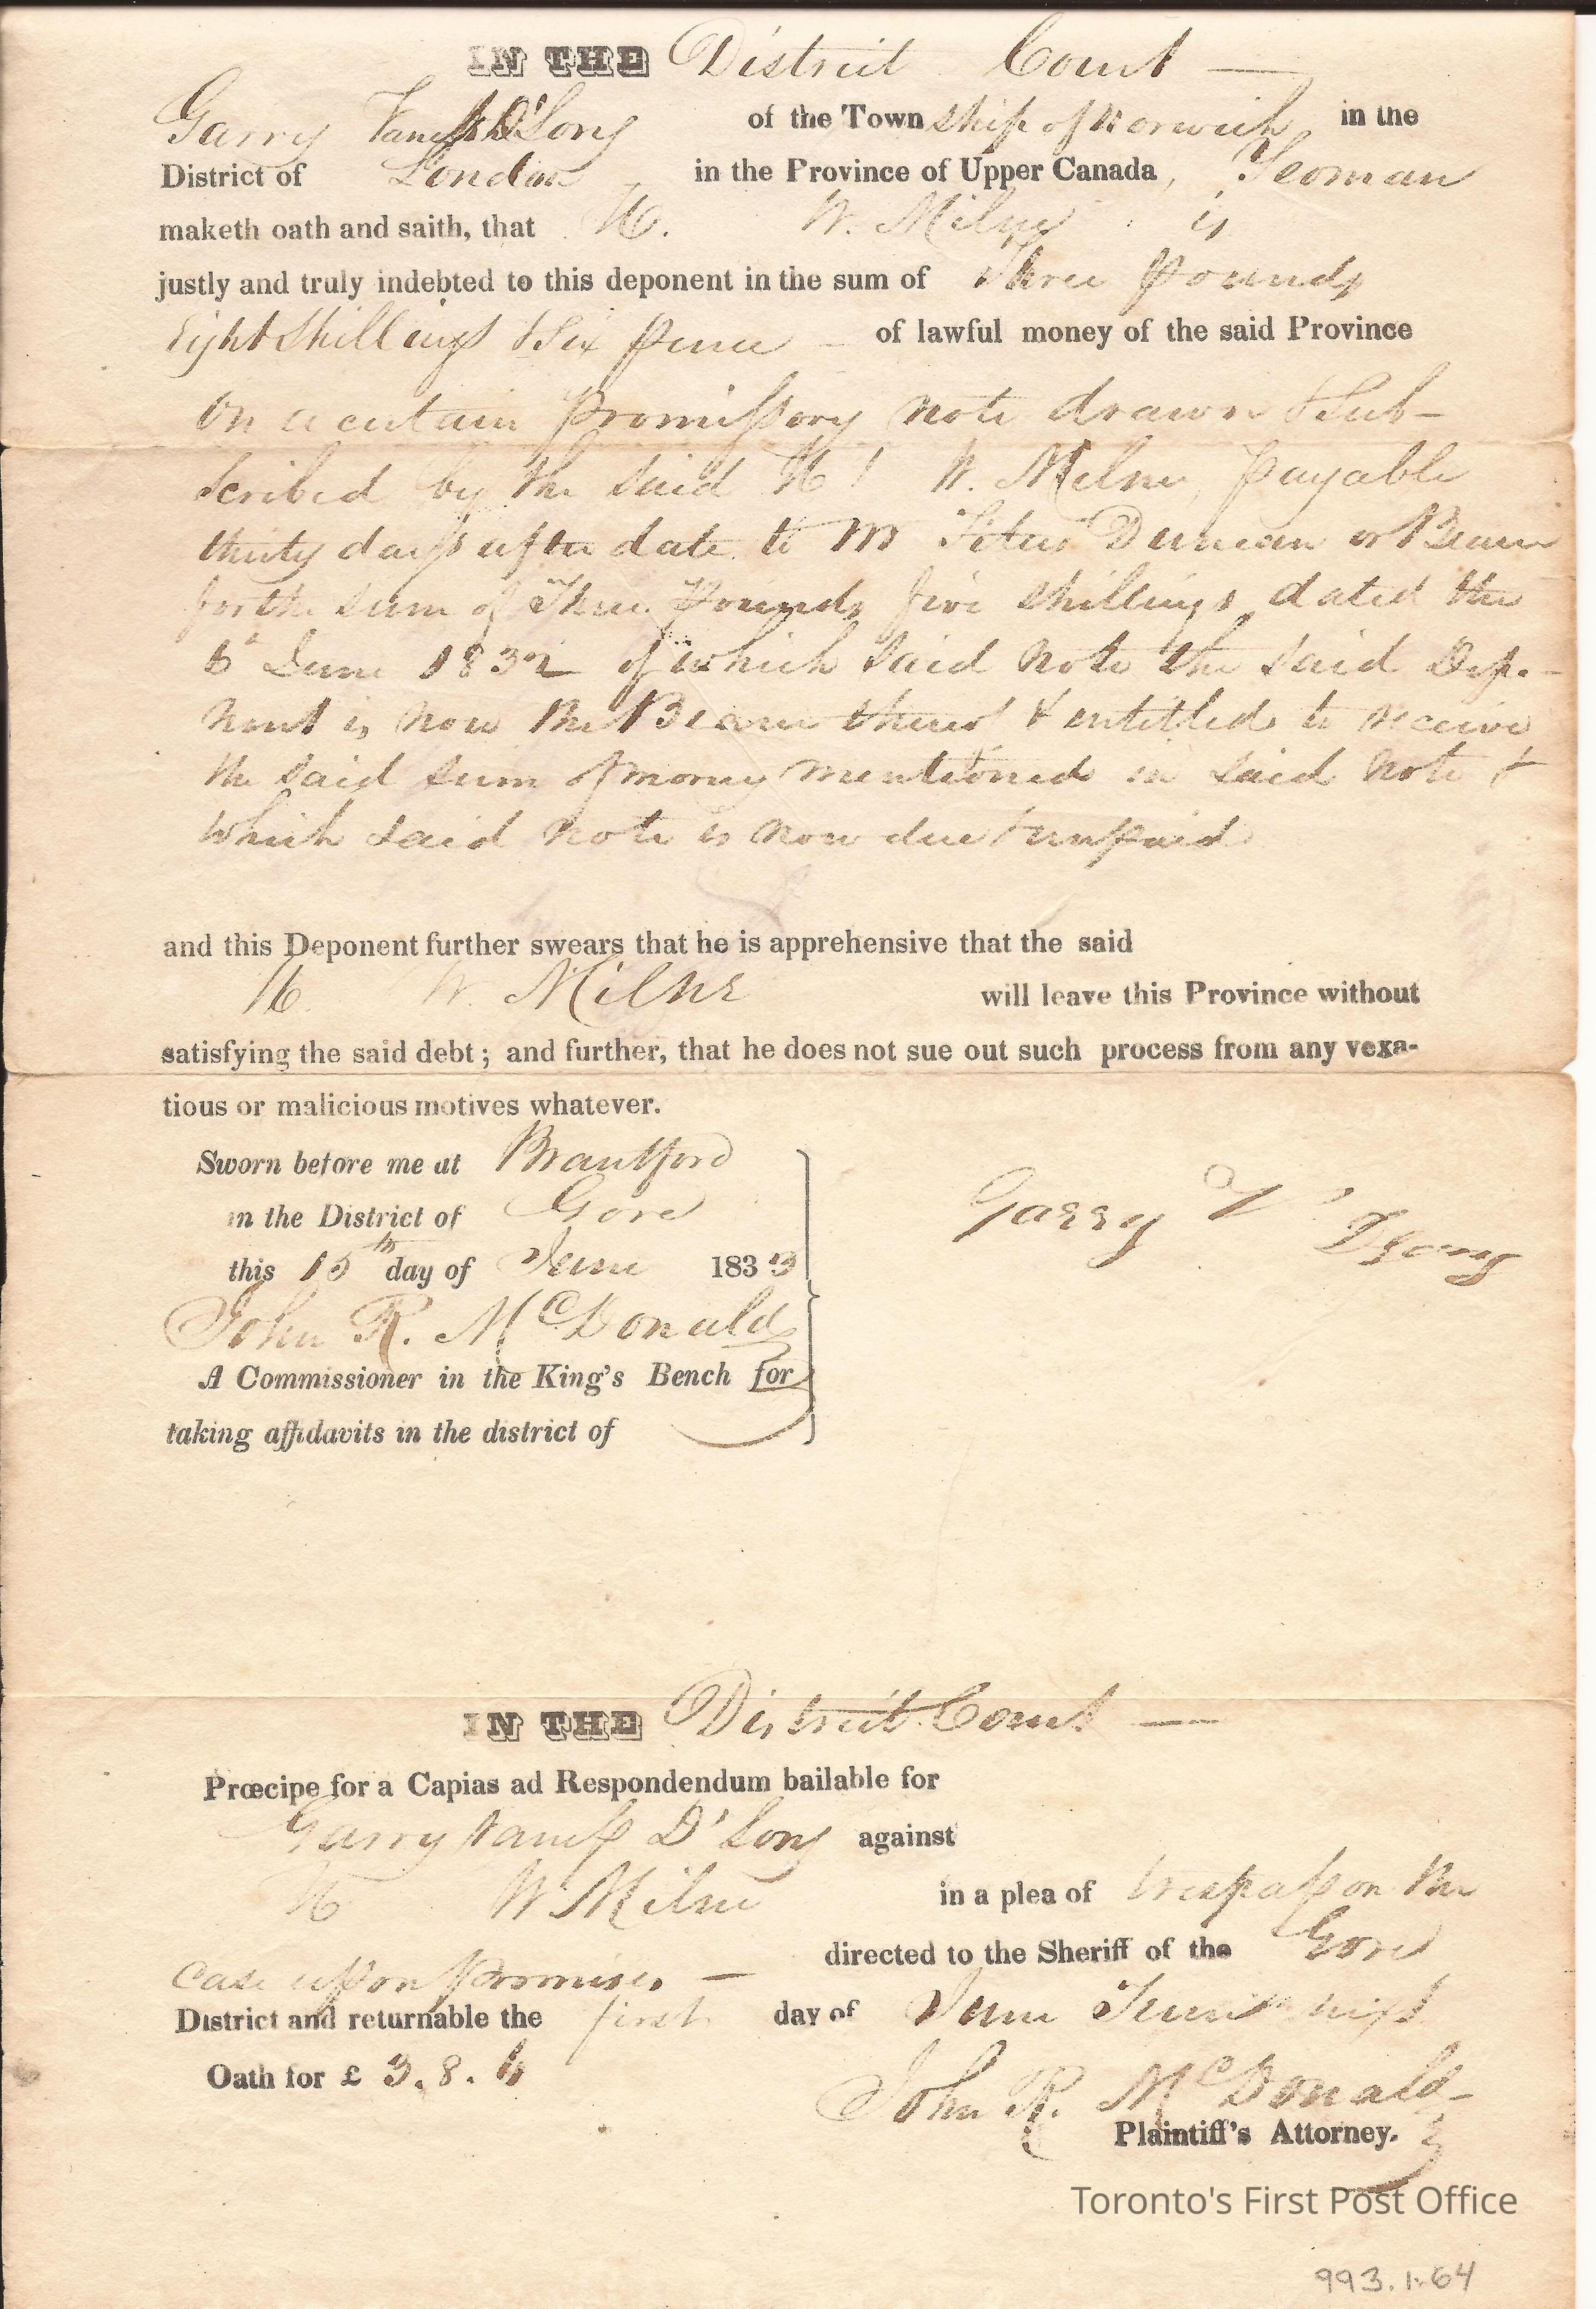 IN THE District Court —
Garry Vaness D'Long of the Township of Norwich in the
District of London in the Province of Upper Canada, Yeoman
maketh oath and saith, that H. W. Milne is
justly and truly indebted to this deponent in the sum of Three Pounds
Eight Shillings & Six Pence – of lawful money of the said Province
On a certain Promissory note drawn & Sub-
scribed by the said H W. Milne, payable
thirty days after date to Mr Titus Duncan or Bearer
for the Sum of Three Pounds five Shillings dated the
6th June 1832 of which said note the said Depo-
nent is now the Bearer thereof & entitled to receive
the said sum of money mentioned in said note &
which said note is now due & unpaid
and this Deponent further swears that he is apprehensive that the said
H. W. Milne will leave this Province without
satisfying the said debt; and further, that he does not sue out such process from any vexa-
tious or malicious motives whatever.
Sworn before me at Brantford
in the District of Gore
this 15th day of June 1833
Garry V DLong
John R. McDonald
A Commissioner in the King's Bench for
taking affidavits in the district of
IN THE District Court —
Præcipe for a Capias ad Respondendum bailable for
Garry Vaness D'Long against
H W. Milne in a plea of trespass on the
case upon promises — directed to the Sheriff of the Gore
District and returnable the first day of June Term next
Oath for £ 3.8.
John R. McDonald
Plaintiff's Attorney.
Toronto's First Post Office
993.1.64